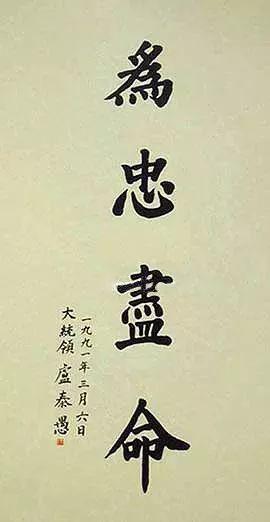 為忠盡命
一九九一年三月六日
大統領 盧泰愚